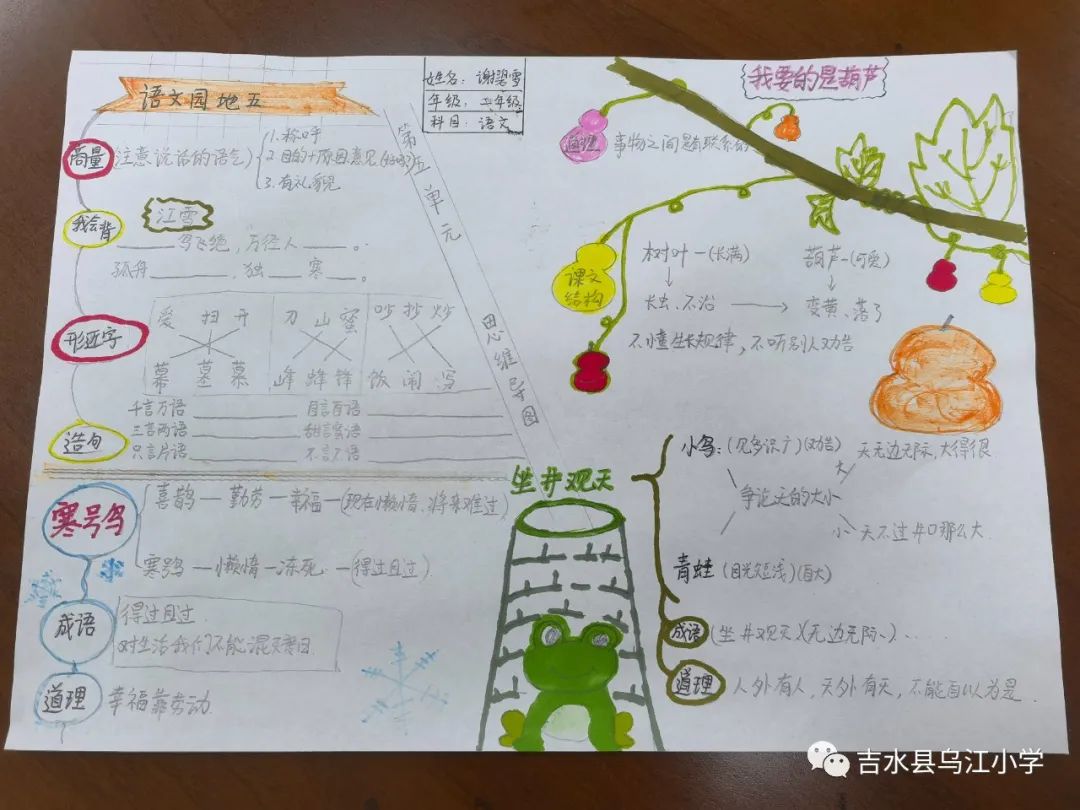 姓名：谢碧雪
年级：二年级
科目：语文
第五单元
思维导图
语文园地五
商量
(注意说话的语气)
1.称呼
2.目的+原因意见
3.有礼貌
我会背
江雪
______鸟飞绝，万径人____。
孤舟______，独___寒___。
形近字
爱 扫 开
刀 山 蜜
吵 抄 炒
幕 墓 慕
峰 蜂 锋
饭 闹 写
造句
千言万语 ______ 自言自语 ______
三言两语 ______ 甜言蜜语 ______
只言片语 ______ 不言不语 ______
寒号鸟
喜鹊—勤劳—幸福—(现在懒惰、将来难过)
寒号鸟—懒惰—冻死—(得过且过)
成语
得过且过
对生活我们不能混天寒日
道理
幸福靠劳动
我要的是葫芦
道理
事物之间是有联系的
课文结构
树叶—(长满)
葫芦—(可爱)
长虫、不治
变黄、落了
不懂生长规律，不听别人劝告
坐井观天
小鸟：(见多识广)(劝告)
大
天无边无际，大得很
争论天的大小
小
天不过井口那么大
青蛙 (目光短浅)(自大)
成语
(坐井观天)(无边无际)……
道理
人外有人，天外有天，不能自以为是.
吉水县乌江小学